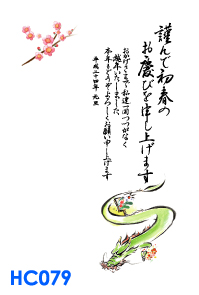 謹んで初春の
お慶びを申し上げます
おかげさまで私達一同つつがなく
越年いたしました
本年もどうぞよろしくお願い申し上げます
平成二十四年 元旦
HC079